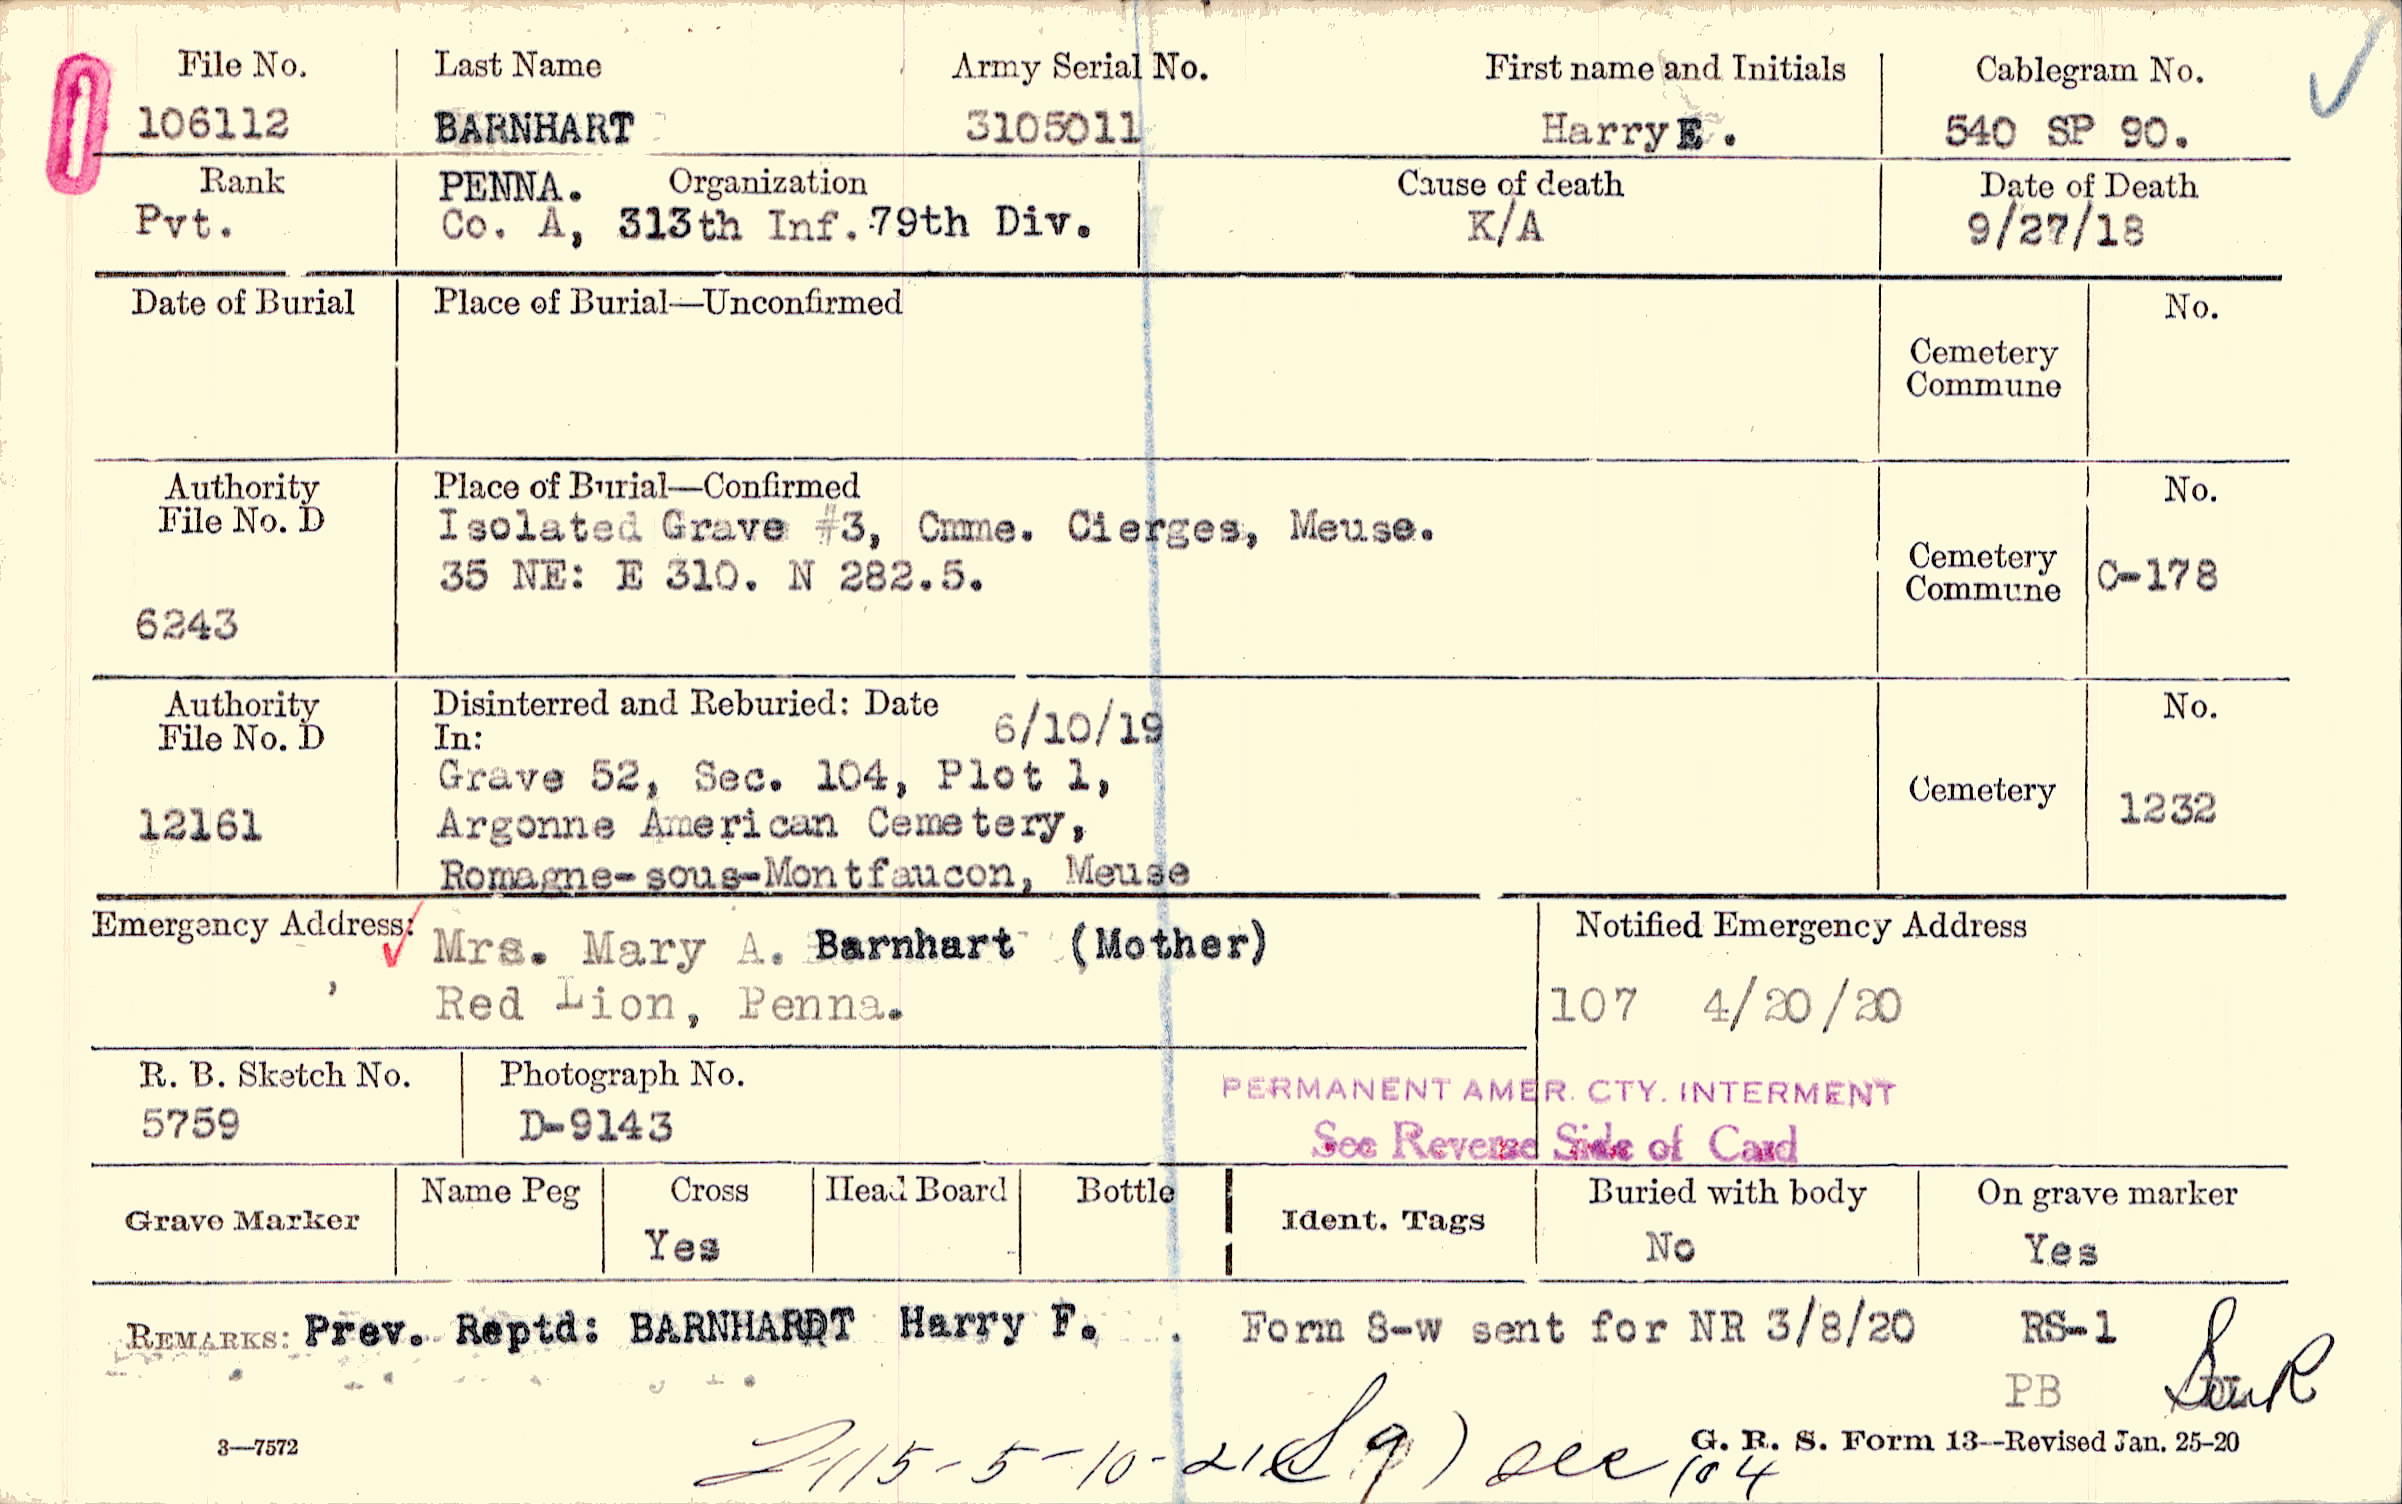 File No. Last Name Army Serial No. First name and Initials Cablegram No.
106112 BARNHART 3105011 Harry E. 540 SP 90.
Rank PENNA. Organization Cause of death Date of Death
Pvt. Co. A, 313th Inf. 79th Div. K/A 9/27/18
Date of Burial Place of Burial—Unconfirmed No.
Cemetery
Commune
Authority Place of Burial—Confirmed No.
File No. D Isolated Grave #3, Cmme. Cierges, Meuse.
Cemetery
35 NE: E 310. N 282.5. C-178
Commune
6243
Authority Disinterred and Reburied: Date 6/10/19 No.
File No. D In:
Grave 52, Sec. 104, Plot 1,
Cemetery 1232
12161 Argonne American Cemetery,
Romagne-sous-Montfaucon, Meuse
Emergency Address: Mrs. Mary A. Barnhart (Mother) Notified Emergency Address
Red Lion, Penna. 107 4/20/20
R. B. Sketch No. Photograph No.
PERMANENT AMER. CTY. INTERMENT
5759 D-9143 See Reverse Side of Card
Grave Marker Name Peg Cross Head Board Bottle Ident. Tags Buried with body On grave marker
Yes No Yes
REMARKS: Prev. Reptd: BARNHARDT Harry F. Form 8-w sent for NR 3/8/20 RS-1
PB
3—7572 G. R. S. Form 13—Revised Jan. 25-20
5-10-21 see